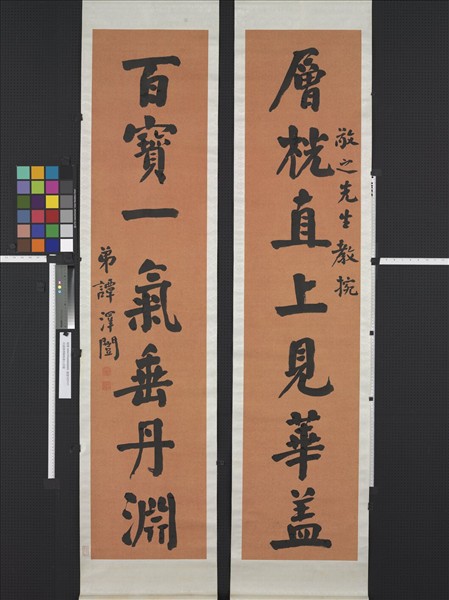 層桄直上見華盖
敬之先生教捥
百寶一氣垂丹淵
弟譚澤闓